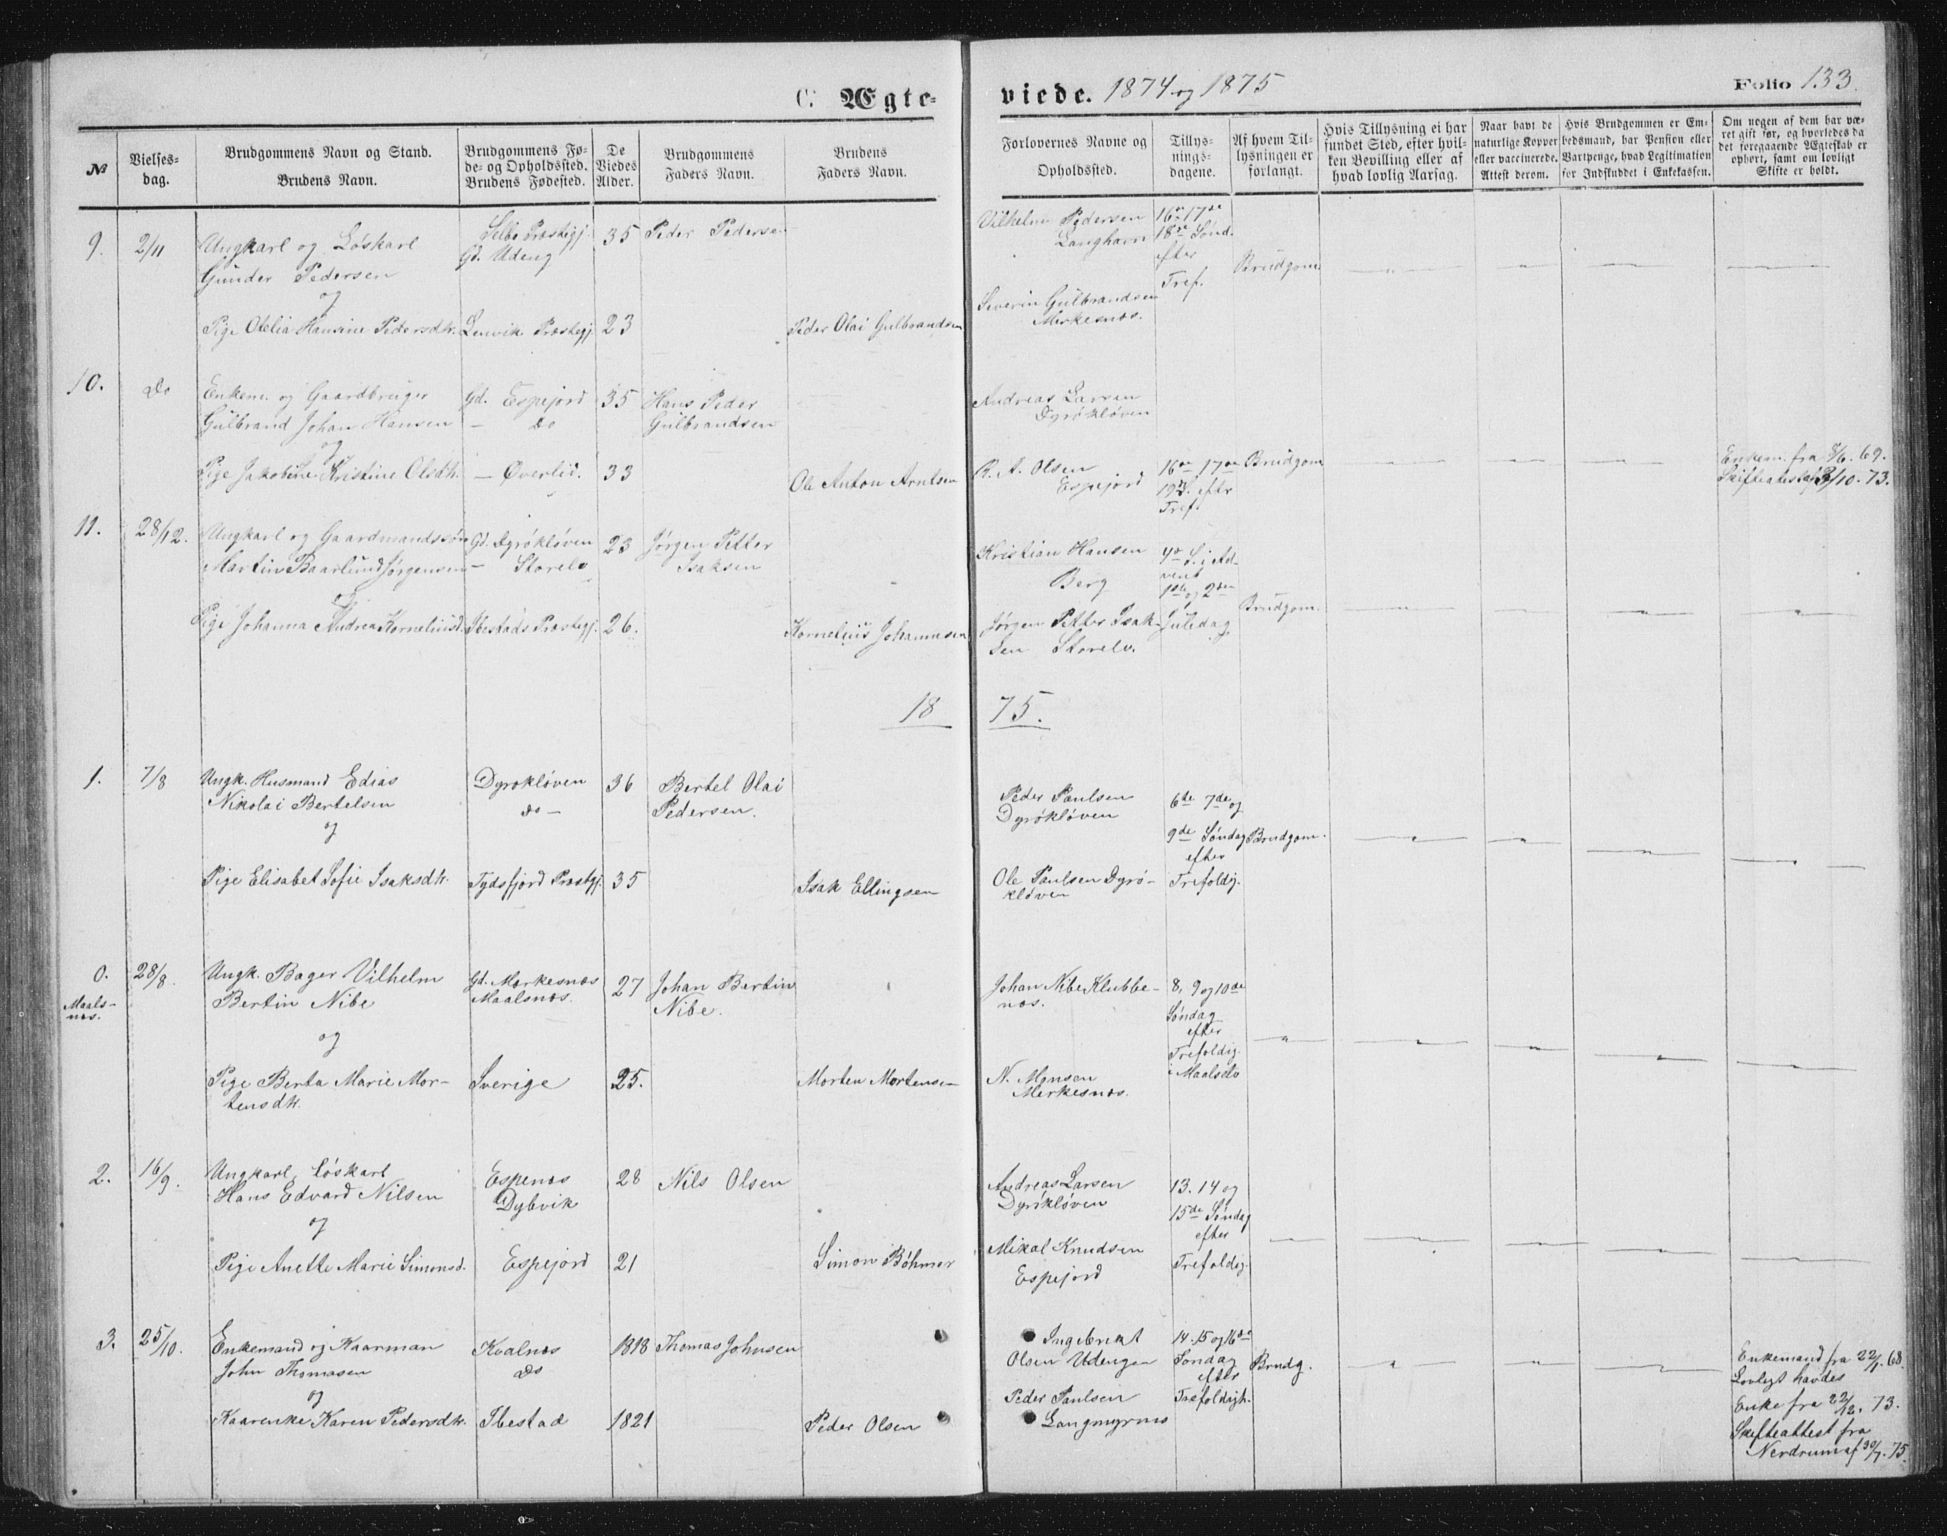 C. Ægte-
viede. 1874 og 1875
Folio 133.
№
Vielses-
dag.
Brudgommens Navn og Stand.
Brudens Navn.
Brudgommens Fø-
de- og Opholdssted.
Brudens Fødested.
De
Viedes
Alder.
Brudgommens
Faders Navn.
Brudens
Faders Navn.
Forlovernes Navne og
Opholdssted.
Tillys-
nings-
dagene.
Af hvem Til-
lysningen er
forlangt.
Hvis Tillysning ei har
fundet Sted, efter hvil-
ken Bevilling eller af
hvad lovlig Aarsag.
Naar havt de
naturlige Kopper
eller vaccinerede.
Attest derom.
Hvis Brudgommen er Em-
bedsmand, har Pension eller
Vartpenge, hvad Legitimation
for Indskuddet i Enkekassen.
Om nogen af dem har væ-
ret gift før, og hvorledes da
det foregaaende Ægteskab er
ophørt, samt om lovligt
Skifte er holdt.
9. 2/11 Ungkarl og Løskarl
Gunder Pedersen
og
Pige Otelia Hansine Pedersdtr.
Selbo Præstegj.
Gd. Udeng
Lenvik Præstegj.
35
23
Peder Pedersen
Peder Olai Gulbrandsen
Vilhelm Pedersen
Langhavn
Severin Gulbrandsen
Merkesnæs.
16de 17de
18de Sønd.
efter
Tref.
Brudgom
10. Do Enkem. og Gaardbruger
Gulbrand Johan Hansen
og
Pige Jakobine Kristine Olsdtr.
Gd. Espejord
— Do
— Øverlid.
35
33
Hans Peder
Gulbrandsen
Ole Anton Arntsen
Andreas Larsen
Dyrøkløven
R. A. Olsen
Espejord
16de 17de
19de S. eftr
Tref.
Brudgom
Enkem. fra 8/6. 69.
Skifteattest af 3/10. 73.
11. 28/12. Ungkarl og Gaardmandssøn
Martin Baarlund Jørgensen
og
Pige Johanna Andrea Korneliusd.
Gd. Dyrøkløven
— Storelv
Ibestads Præstegj.
23
26.
Jørgen Petter
Isaksen
Kornelius Johannesen
Kristian Hansen
Berg
Jørgen Petter Isak-
sen Storelv.
4de S. i Ad-
vent
1ste og 2den
Juledag
Brudgom.
18 75.
1. 7/8 Ungk. Husmand Edias
Nikolai Bertelsen
og
Pige Elisabet Sofie Isaksdtr.
Dyrøkløven
do —
Tydsfjord Præstgj.
36
35
Bertel Olai
Pedersen.
Isak Ellingsen
Peder Paulsen
Dyrøkløven
Ole Paulsen Dyrø-
kløven
6de 7de og
9de Søndag
efter
Trefoldig.
Brudgom.
0.
Maals-
næs.
28/8. Ungk. Bager Vilhelm
Bertin Nibe
og
Pige Berta Marie Mor-
tensdtr.
Gd. Merkesnæs
Maalsnæs.
Sverige
27
25.
Johan Bertin
Nibe.
Morten Mortensen
Johan Nibe Klubbe-
næs.
N. Monsen
Merkesnæs.
8, 9 og 10de
Søndag
efter
Trefoldig.
i Maalselv
2. 16/9. Ungkarl, Løskarl
Hans Edvard Nilsen
og
Pige Anette Marie Simonsd.
Espenæs
Dybvik
Espejord
28
21
Nils Olsen
Simon Bøhmer
Andreas Larsen
Dyrøkløven
Mikal Knudsen
Espejord
13. 14 og
15de Søndag
efter
Trefoldig.
3. 25/10. Enkemand og Kaarman
John Thomasen
og
Kaarenke Karen Pedersdtr.
Kvalnæs
Do
Ibestad
1818
1821
Thomas Johnsen
Peder Olsen
Ingebrikt
Olsen Udengen
Peder Paulsen
Langmyrnes
14. 15 og 16de
Søndag
efter
Trefoldigh.
Brudg.
Enkemand fra 22/1. 68.
Lovligt havdes
Enke fra 22/12. 73.
Skifteattest fra
Nerdrum af 30/7. 75.